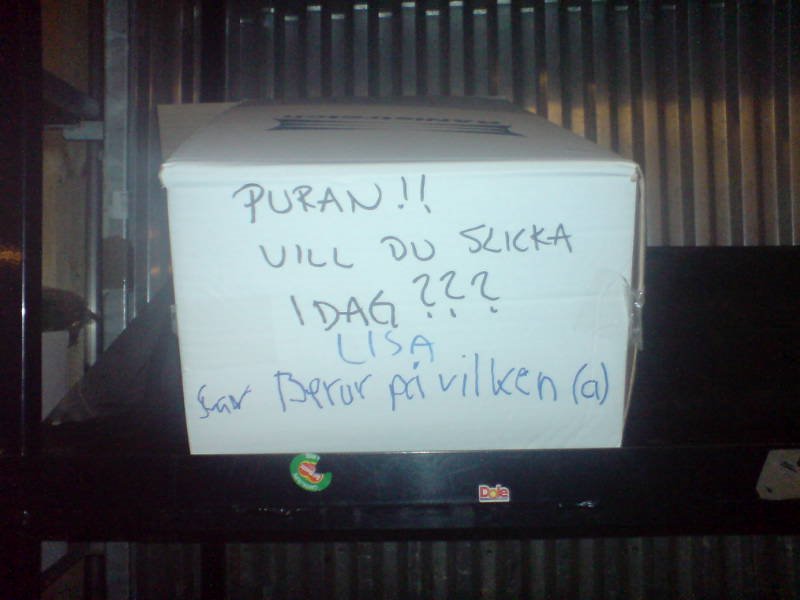 PURAN!!
VILL DU SLICKA
IDAG???
LISA
svar Beror på vilken (a)
Dole